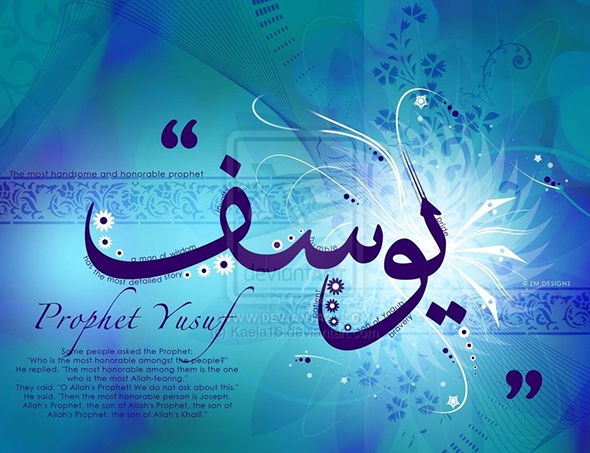 The most handsome and honorable prophet
يوسف
a man of wisdom
has the most detailed story
son of Yaqub
bravery
© ZM DESIGNS
deviantART
WWW.DEVIANTART.COM
Kaela16.deviantart.com
Prophet Yusuf
Some people asked the Prophet:
"Who is the most honorable amongst the people?"
He replied, "The most honorable among them is the one
who is the most Allah-fearing."
They said, "O Allah's Prophet! We do not ask about this."
He said, "Then the most honorable person is Joseph,
Allah's Prophet, the son of Allah's Prophet, the son of
Allah's Prophet, the son of Allah's Khalil."